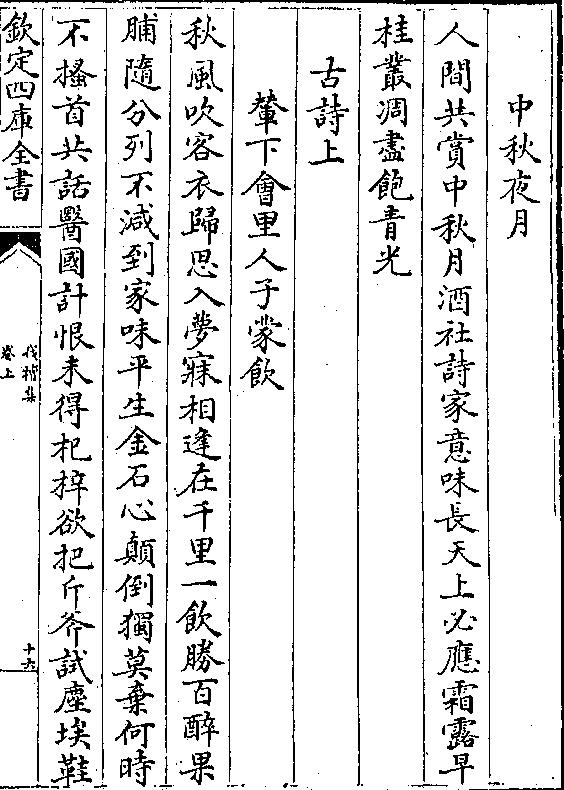 中秋夜月
人間共賞中秋月酒社詩家意味長天上必應霜露早
桂叢凋盡飽青光
古詩上
輦下會里人子蒙飲
秋風吹客衣歸思入夢寐相逢在千里一飲勝百醉果
脯隨分列不減到家味平生金石心顛倒獨莫棄何時
不搔首共話醫國計恨未得杞梓欲把斤斧試塵埃鞋
欽定四庫全書
卷上
十六